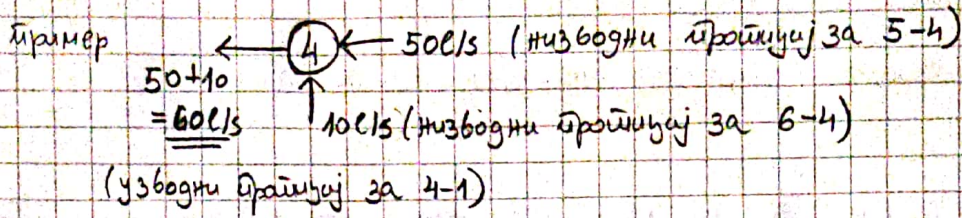 пример 4 50l/s (низводни протицај за 5-4)
50+10
=60l/s 10l/s (низводни протицај за 6-4)
(узводни протицај за 4-1)